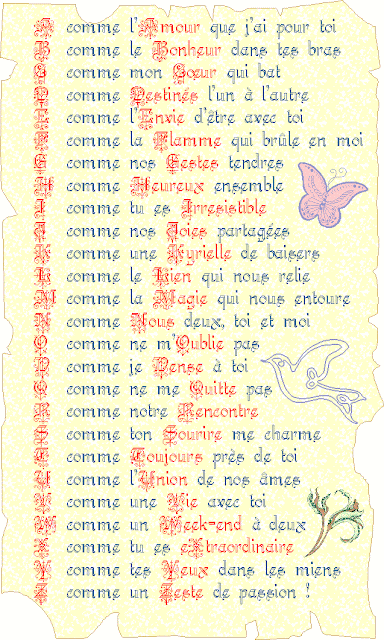 A comme l'Amour que j'ai pour toi
B comme le Bonheur dans tes bras
C comme mon Cœur qui bat
D comme Destinés l'un à l'autre
E comme l'Envie d'être avec toi
F comme la Flamme qui brûle en moi
G comme nos Gestes tendres
H comme Heureux ensemble
I comme tu es Irresistible
J comme nos Joies partagées
K comme une Kyrielle de baisers
L comme le Lien qui nous relie
M comme la Magie qui nous entoure
N comme Nous deux, toi et moi
O comme ne m'Oublie pas
P comme je Pense à toi
Q comme ne me Quitte pas
R comme notre Rencontre
S comme ton Sourire me charme
T comme Toujours près de toi
U comme l'Union de nos âmes
V comme une Vie avec toi
W comme un Week-end à deux
X comme tu es eXtraordinaire
Y comme tes Yeux dans les miens
Z comme un Zeste de passion !